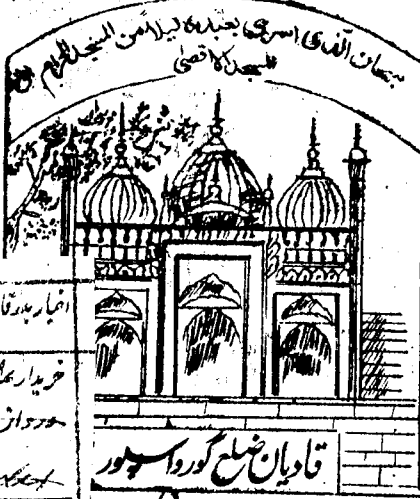 سبحان الذی اسری بعبدہ لیلا من المسجد الحرام الی
المسجد الاقصی
اخبار بدر قا
خریدار
قادیان ضلع گورداسپور